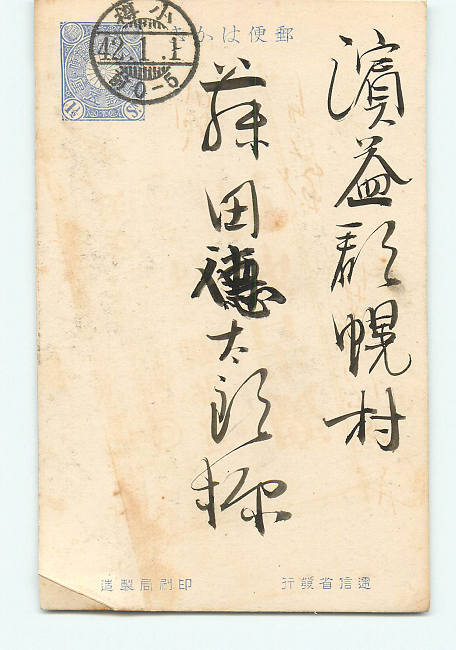 郵便はかき
小樽
42.1.1
前0-5
1½
濱益郡幌村
藤田德太郎様
遞信省發行
印刷局製造